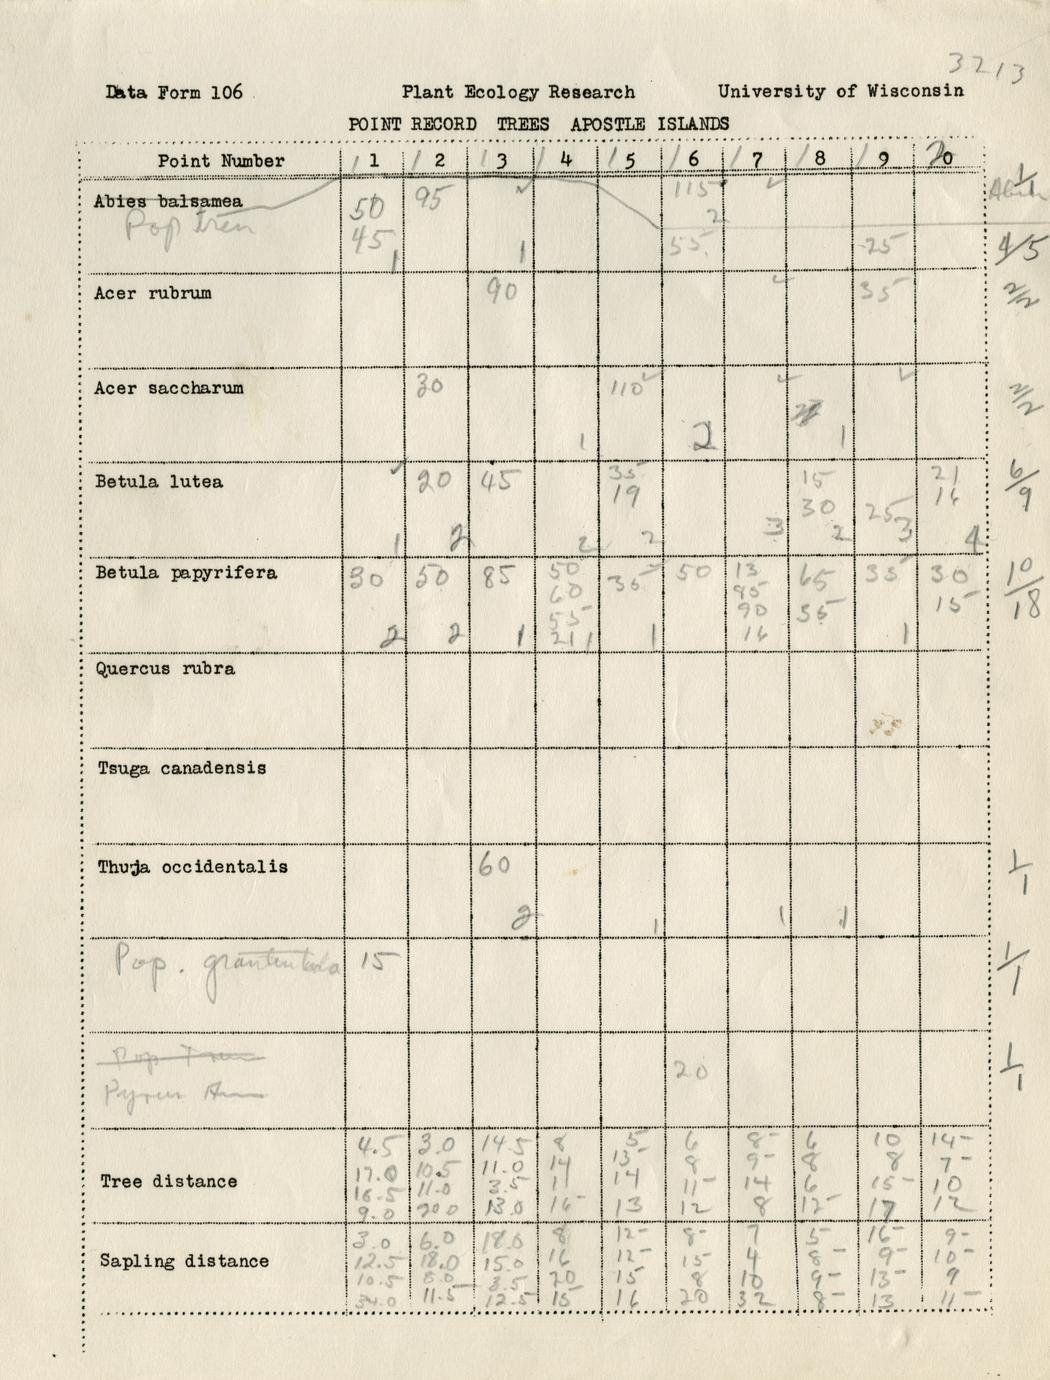 3213
Data Form 106 Plant Ecology Research University of Wisconsin
POINT RECORD TREES APOSTLE ISLANDS
Point Number 11 12 13 14 15 16 17 18 19 20
Abies balsamea 50 95 115 2 1/1
Pop Trem 45 1 1 55 25 4/5
Acer rubrum 90 35 2/2
Acer saccharum 30 110 2/2
1 2 1
Betula lutea 20 45 35 15 21 6/9
19 30 25 16
1 2 2 2 3 2 3 4
Betula papyrifera 30 50 85 50 35 50 13 65 35 30 10/18
60 85 35 15
55 90
2 2 1 21 1 1 16 1
Quercus rubra
Tsuga canadensis
Thuja occidentalis 60 1/1
2 1 1 1
Pop. 15 1/1
Pop Trem 20 1/1
Pyrus Am
4.5 3.0 14.5 8 5 6 8 6 10 14
17.0 10.5 11.0 14 13 8 9 8 8 7
Tree distance 16.5 11.0 3.5 11 14 11 14 6 15 10
9.0 20.0 13.0 16 13 12 8 12 17 12
3.0 6.0 18.0 8 12 8 7 5 16 9
Sapling distance 12.5 18.0 15.0 16 12 15 4 8 9 10
10.5 8.0 3.5 20 15 8 10 9 13 9
34.0 11.5 12.5 15 16 20 32 8 13 11